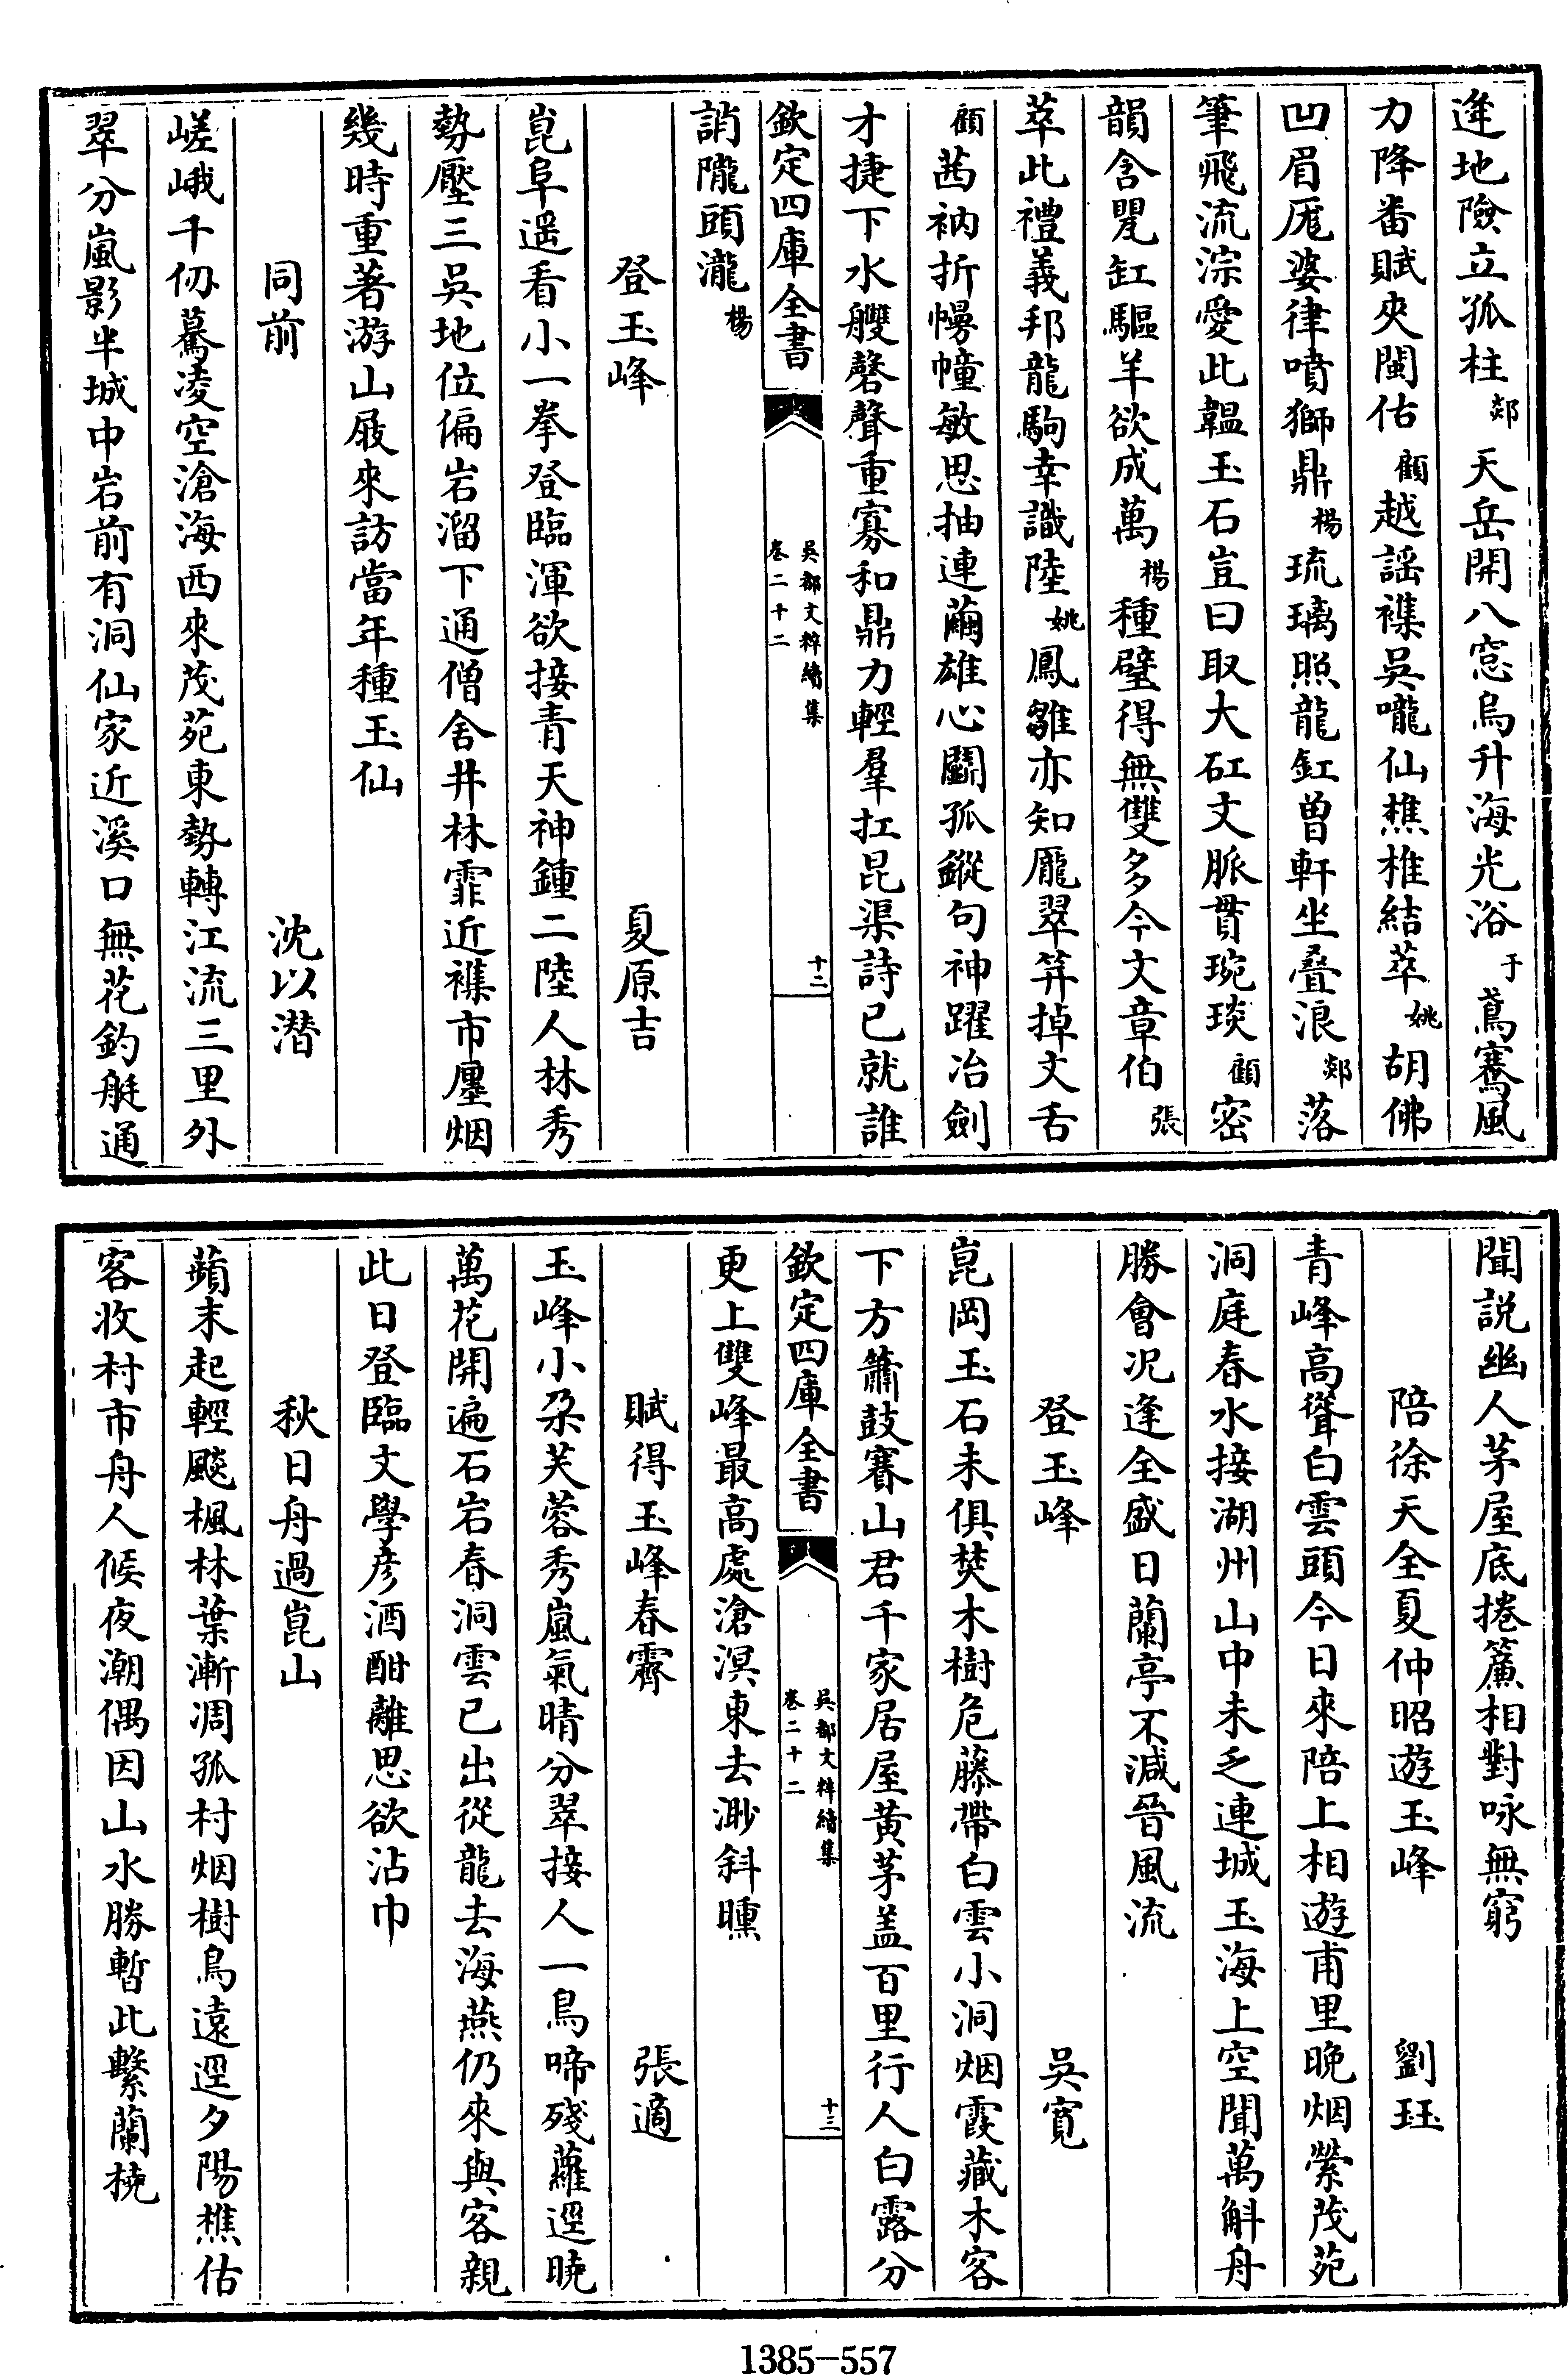 逄地險立孤柱郯天岳開八窓烏升海光浴于鳶騫風
力降畨賦夾閩估顧越謡襍吳嚨仙樵椎結萃姚胡佛
凹眉厖婆律噴獅鼎楊琉璃照龍釭曽軒坐疊浪郯落
筆飛流淙愛此韞玉石豈曰取大矼丈脈貫琬琰顧宻
韻含甖缸驅羊欲成萬楊種璧得無雙多今文章伯張
萃此禮義邦龍駒幸識陸姚鳳雛亦知龎翠笄掉文舌
顧茜衲折㡆幢敏思抽連繭雄心鬬孤鏦句神躍冶劍
才捷下水艭磬聲重寡和鼎力輕羣扛昆渠詩已就誰
欽定四庫全書
吳都文粹續集
卷二十二
十二
誚隴頭瀧楊
登玉峰 夏原吉
崑阜遥看小一拳登臨渾欲接青天神鍾二陸人林秀
勢壓三吳地位偏岩溜下通僧舍井林霏近襍市廛烟
幾時重著游山屐來訪當年種玉仙
同前 沈以潛
嵯峨千仭驀凌空滄海西來茂苑東勢轉江流三里外
翠分嵐影半城中岩前有洞仙家近溪口無花釣艇通
聞説幽人茅屋底捲簾相對咏無窮
陪徐天全夏仲昭遊玉峰 劉珏
青峰高聳白雲頭今日來陪上相遊甫里晚烟縈茂苑
洞庭春水接湖州山中未乏連城玉海上空聞萬斛舟
勝會况逢全盛日蘭亭不減晉風流
登玉峰 吳寛
崑岡玉石未俱焚木樹危藤帶白雲小洞烟霞藏木客
下方簫鼓賽山君千家居屋黄茅盖百里行人白露分
欽定四庫全書
吳都文粹續集
卷二十二
十三
更上雙峰最高處滄溟東去渺斜曛
賦得玉峰春霽 張適
玉峰小朶芙蓉秀嵐氣晴分翠接人一鳥啼殘蘿逕曉
萬花開遍石岩春洞雲已出從龍去海燕仍來與客親
此日登臨文學彦酒酣離思欲沾巾
秋日舟過崑山
蘋末起輕颷楓林葉漸凋孤村烟樹鳥遠逕夕陽樵估
客收村市舟人候夜潮偶因山水勝暫此繫蘭橈
1385-557